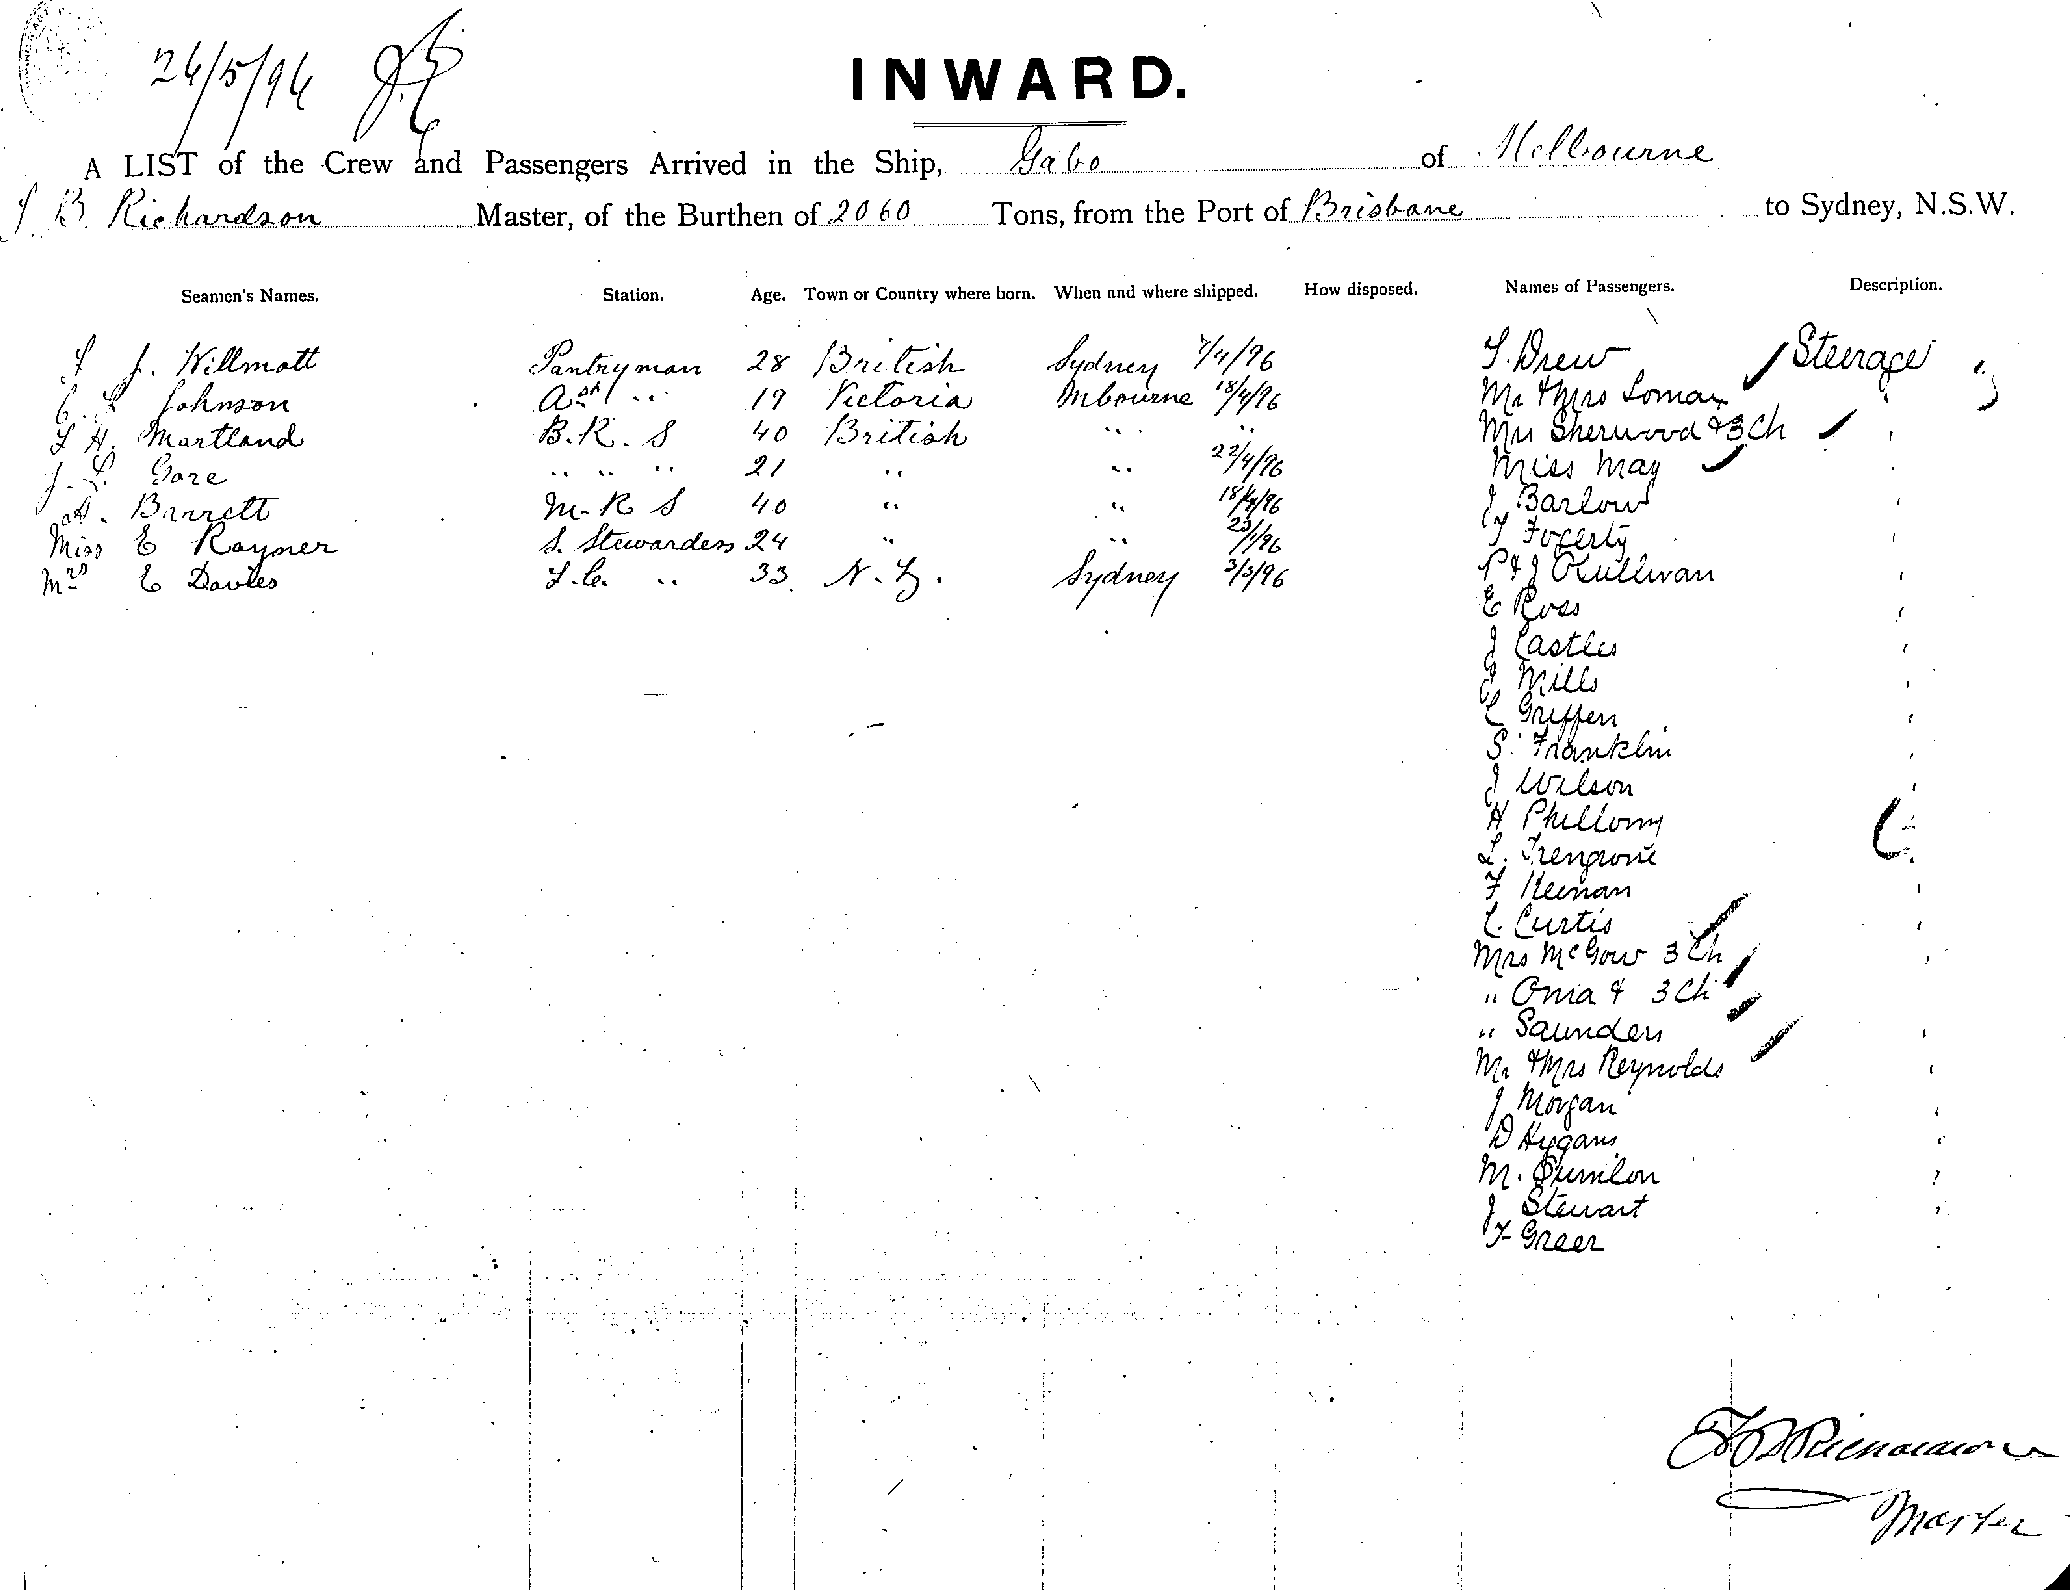 26/5/96
INWARD.
A LIST of the Crew and Passengers Arrived in the Ship, Gabo of Melbourne
B Richardson Master, of the Burthen of 2060 Tons, from the Port of Brisbane to Sydney, N.S.W.
Seamen's Names. Station. Age. Town or Country where born. When and where shipped. How disposed. Names of Passengers. Description.
J. Willmott Pantryman 28 British Sydney 7/4/96 Drew Steerage
Johnson Asst " 19 Victoria Mbourne 18/4/96 Mr & Mrs Lomax
H. Martland B.R. S 40 British " " Mrs Sherwood & 3 Ch
Gore " " " 21 " " 22/4/96 Miss May
Barrett M.R S 40 " " J Barlow
Miss E Rayner S. Stewardess 24 " " T Fogerty
Mrs E Davies " 33 N.Z. Sydney 3/3/96 P & J OSullivan
E Ross
J Castles
Mills
Griffen
S. Franklin
J Wilson
H
L. Trengrove
F Keenan
C. Curtis
Mrs McGow 3 Ch
" & 3 Ch
" Saunders
Mr & Mrs Reynolds
J Morgan
D
M.
J Stewart
F Greer
Richardson
Master